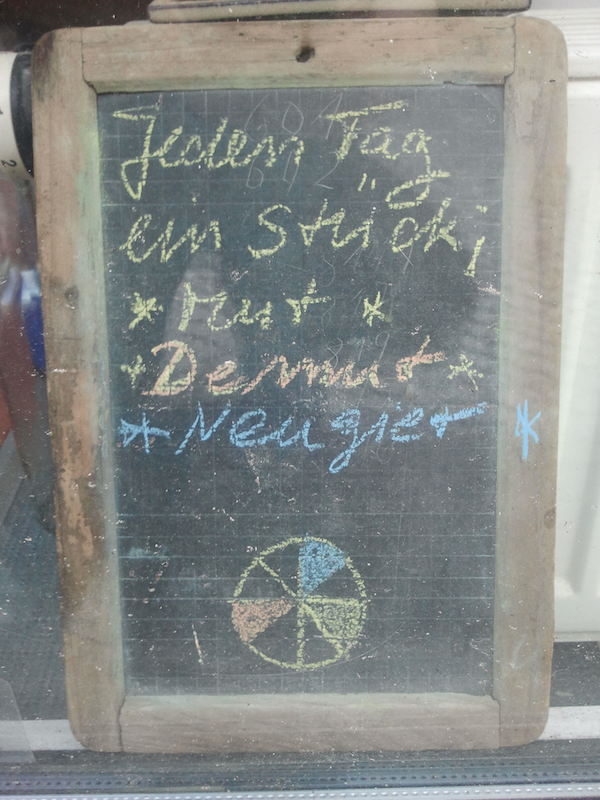 Jeden Tag
ein Stück,
* Mut *
* Demut *
* Neugier *